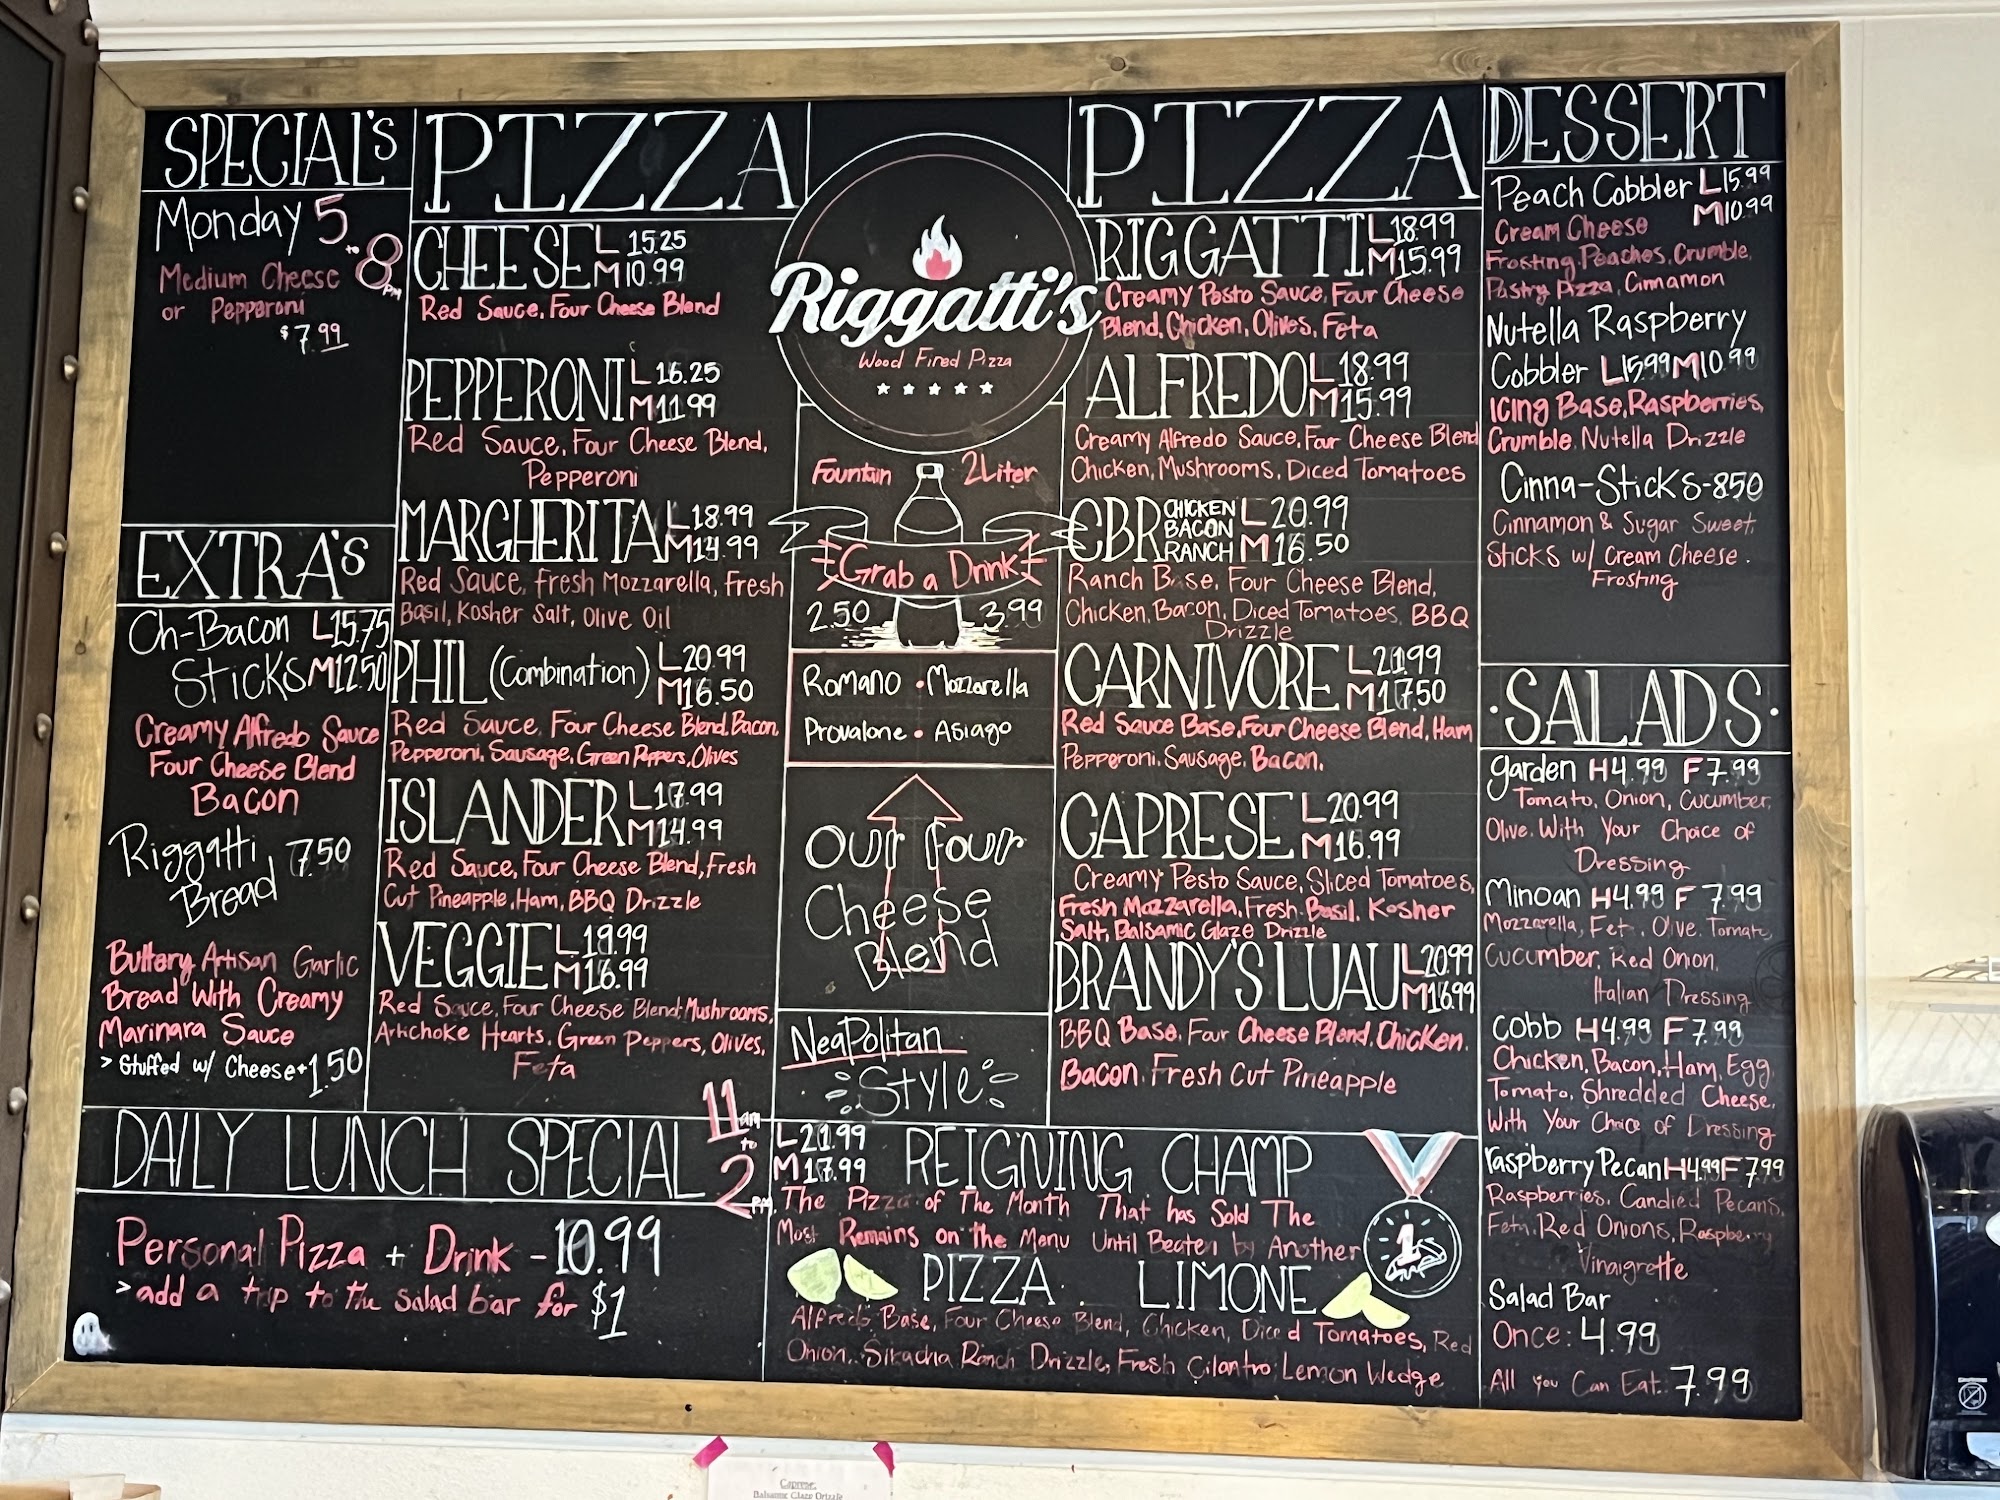 SPECIAL's
Monday 5 to 8 PM
Medium Cheese
or Pepperoni
$7.99
EXTRA's
Ch-Bacon L15.75
Sticks M12.50
Creamy Alfredo Sauce
Four Cheese Blend
Bacon
Riggatti 7.50
Bread
Buttery Artisan Garlic
Bread With Creamy
Marinara Sauce
> Stuffed w/ Cheese + 1.50
PIZZA
CHEESE L 15.25
M 10.99
Red Sauce, Four Cheese Blend
PEPPERONI L 16.25
M 11.99
Red Sauce, Four Cheese Blend,
Pepperoni
MARGHERITA L18.99
M14.99
Red Sauce, Fresh Mozzarella, Fresh
Basil, Kosher Salt, Olive Oil
PHIL (Combination) L20.99
M16.50
Red Sauce, Four Cheese Blend, Bacon,
Pepperoni, Sausage, Green Peppers, Olives
ISLANDER L17.99
M14.99
Red Sauce, Four Cheese Blend, Fresh
Cut Pineapple, Ham, BBQ Drizzle
VEGGIE L19.99
M16.99
Red Sauce, Four Cheese Blend, Mushrooms,
Artichoke Hearts, Green Peppers, Olives,
Feta
Riggatti's
Wood Fired Pizza
Fountain 2Liter
Grab a Drink
2.50 3.99
Romano • Mozzarella
Provalone • Asiago
Our Four
Cheese
Blend
NeaPolitan
Style
PIZZA
RIGGATTI L18.99
M15.99
Creamy Pesto Sauce, Four Cheese
Blend, Chicken, Olives, Feta
ALFREDO L18.99
M15.99
Creamy Alfredo Sauce, Four Cheese Blend
Chicken, Mushrooms, Diced Tomatoes
CBR CHICKEN BACON RANCH L 20.99
M 16.50
Ranch Base, Four Cheese Blend,
Chicken, Bacon, Diced Tomatoes, BBQ
Drizzle
CARNIVORE L21.99
M17.50
Red Sauce Base, Four Cheese Blend, Ham
Pepperoni, Sausage, Bacon.
CAPRESE L20.99
M16.99
Creamy Pesto Sauce, Sliced Tomatoes,
Fresh Mozzarella, Fresh Basil, Kosher
Salt, Balsamic Glaze Drizzle
BRANDY'S LUAU L20.99
M16.99
BBQ Base, Four Cheese Blend, Chicken,
Bacon, Fresh Cut Pineapple
DESSERT
Peach Cobbler L15.99
M10.99
Cream Cheese
Frosting, Peaches, Crumble,
Pastry Pizza, Cinnamon
Nutella Raspberry
Cobbler L15.99 M10.99
Icing Base, Raspberries,
Crumble, Nutella Drizzle
Cinna-Sticks-850
Cinnamon & Sugar Sweet
Sticks w/ Cream Cheese
Frosting
·SALADS·
Garden H4.99 F7.99
Tomato, Onion, Cucumber,
Olive. With Your Choice of
Dressing
Minoan H4.99 F 7.99
Mozzarella, Fet , Olive, Tomato,
Cucumber, Red Onion,
Italian Dressing
Cobb H4.99 F7.99
Chicken, Bacon, Ham, Egg,
Tomato, Shredded Cheese,
With Your Choice of Dressing
raspberry Pecan H4.99 F7.99
Raspberries, Candied Pecans,
Feta, Red Onions, Raspberry
Vinaigrette
Salad Bar
Once: 4.99
All you Can Eat: 7.99
DAILY LUNCH SPECIAL 11 am to 2 PM
Personal Pizza + Drink - 10.99
> add a trip to the salad bar for $1
L21.99
M17.99
REIGNING CHAMP
The Pizza of The Month That has Sold The
Most Remains on the Menu Until Beaten by Another
1
PIZZA LIMONE
Alfredo Base, Four Cheese Blend, Chicken, Diced Tomatoes, Red
Onion, Sikacha Ranch Drizzle, Fresh Cilantro, Lemon Wedge
Caprese:
Balsamic Glaze Drizzle